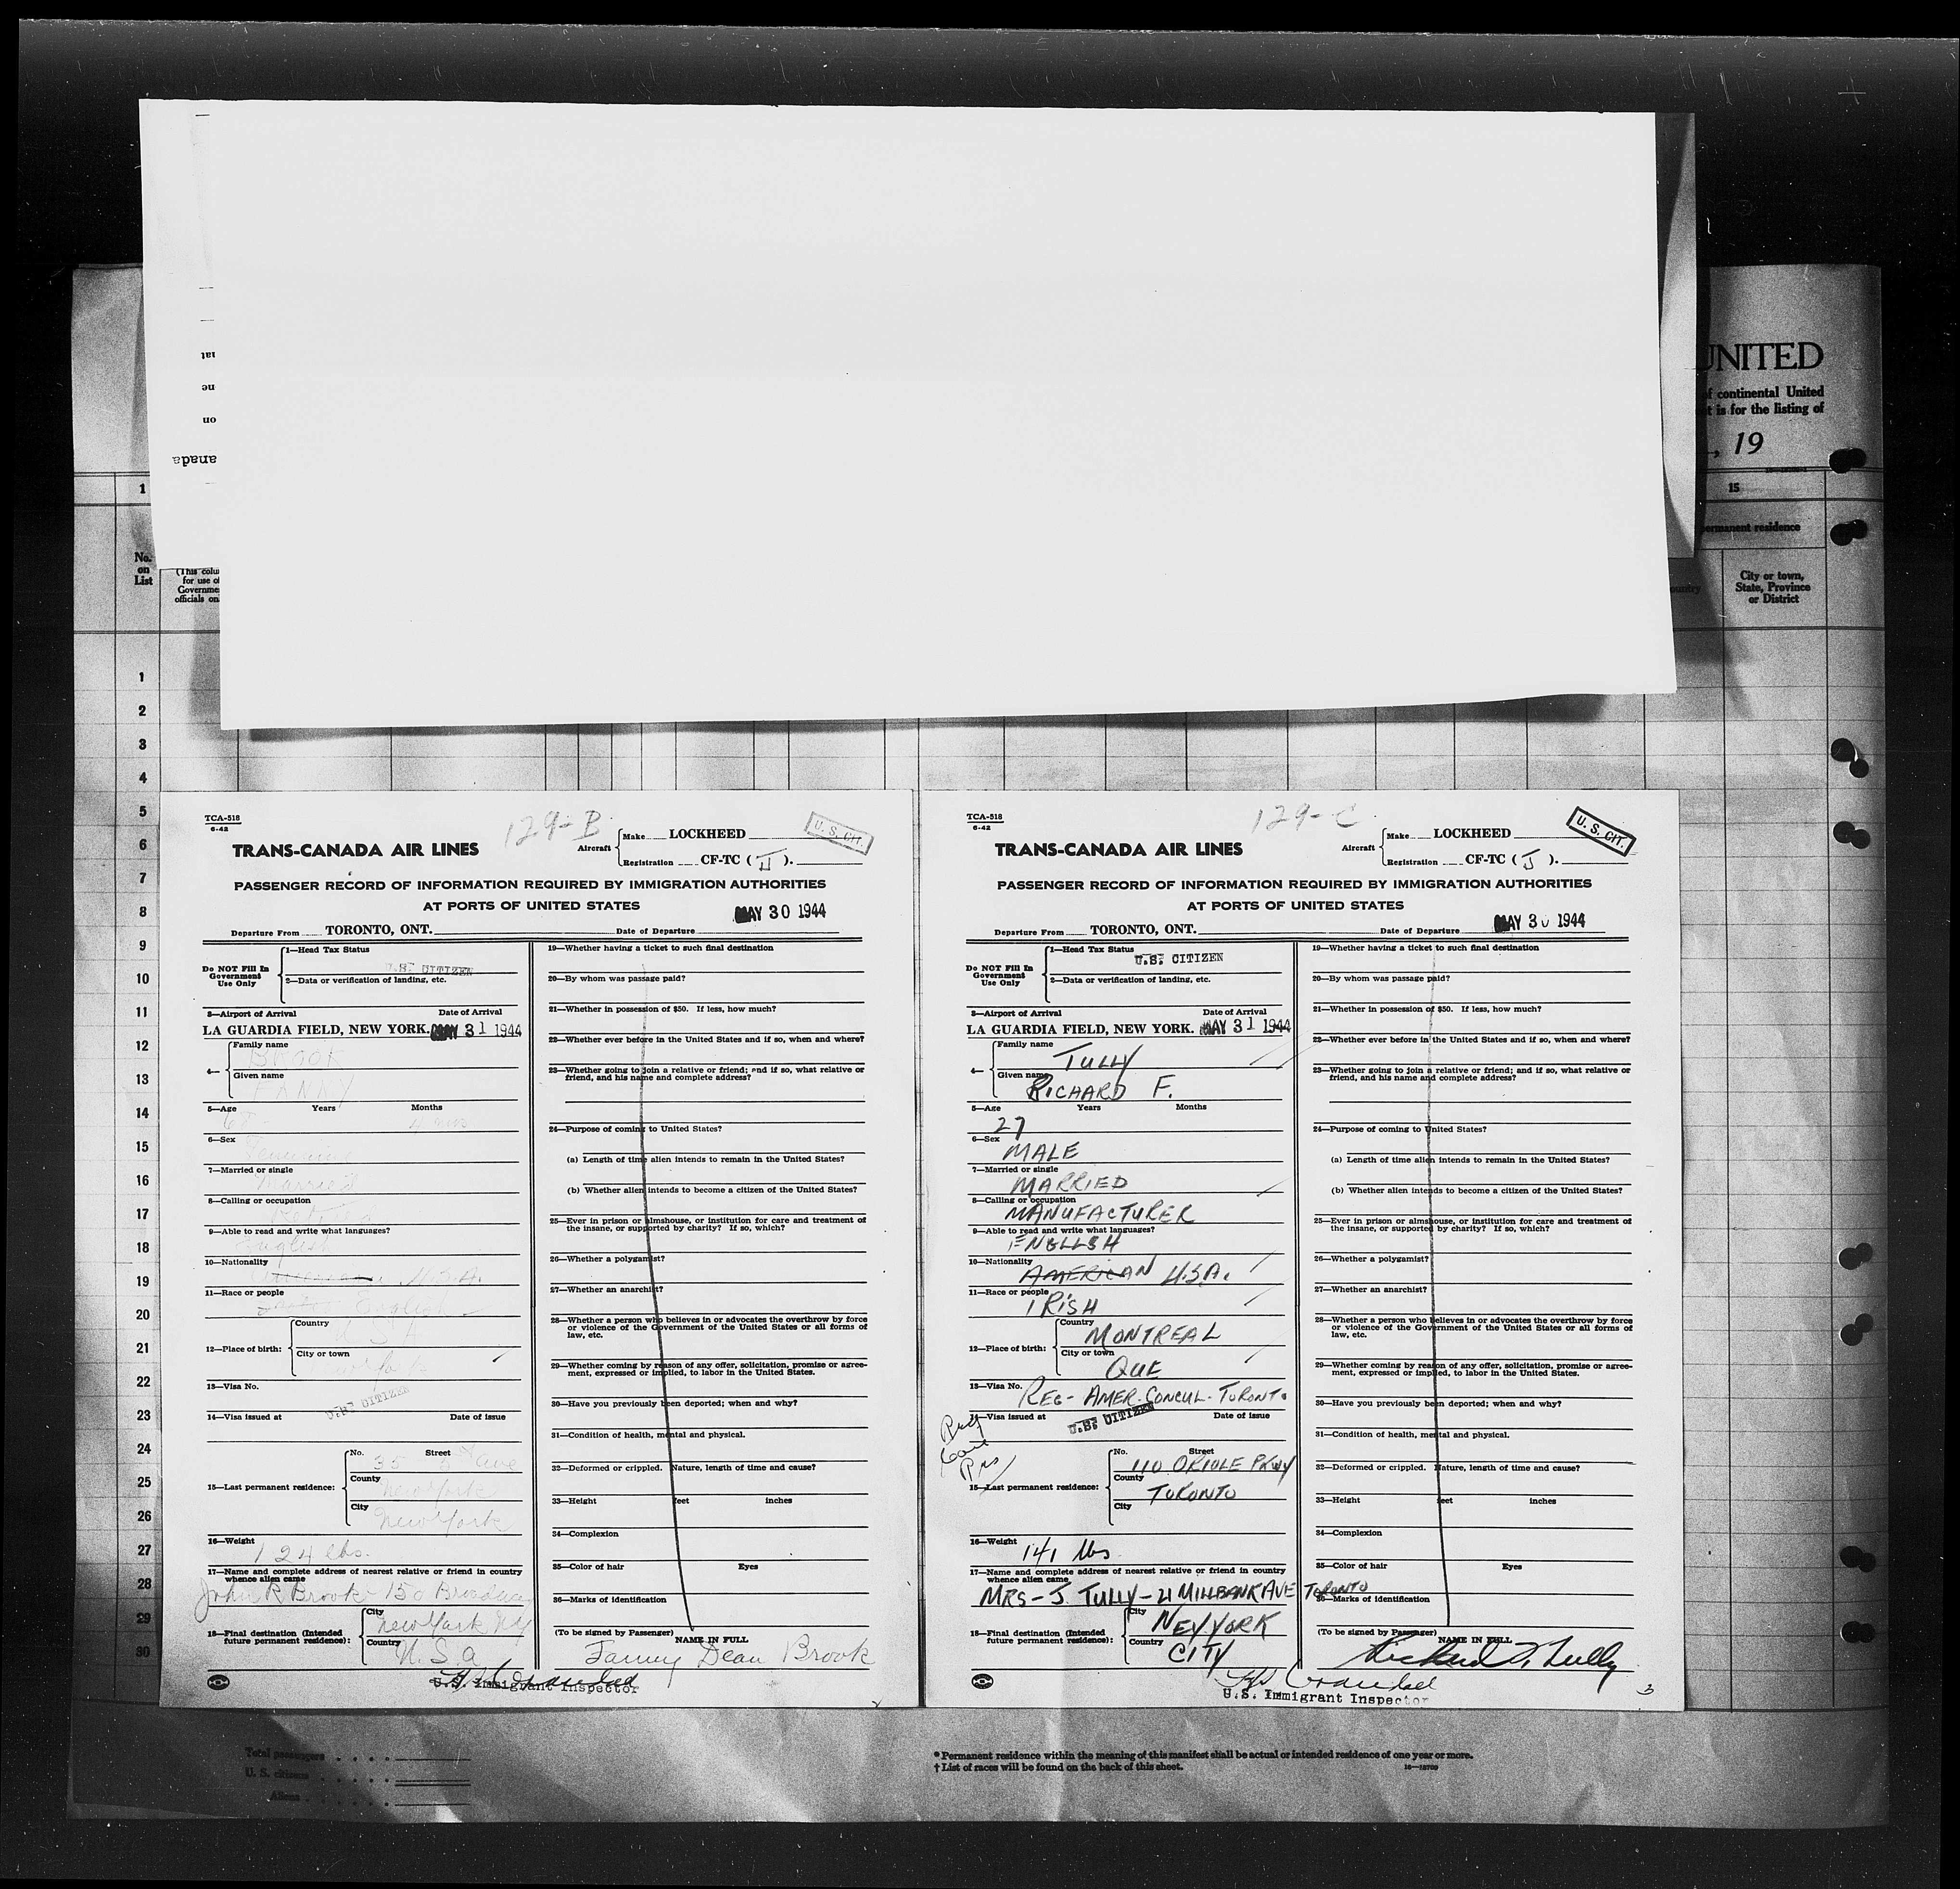 UNITED
of continental United
t is for the listing of
, 19
anada
on
ne
nat
1
15
permanent residence
No.
on
List
(This colu
for use of
Governme
officials on
ountry
City or town,
State, Province
or District
1
2
3
4
5
6
7
8
9
10
11
12
13
14
15
16
17
18
19
20
21
22
23
24
25
26
27
28
29
30
TCA-518
6-42
129-B
U. S. CIT.
TRANS-CANADA AIR LINES
Aircraft
Make LOCKHEED
Registration CF-TC ( J ).
PASSENGER RECORD OF INFORMATION REQUIRED BY IMMIGRATION AUTHORITIES
AT PORTS OF UNITED STATES
MAY 30 1944
Departure From TORONTO, ONT. Date of Departure
Do NOT Fill In
Government
Use Only
1—Head Tax Status
U.S. CITIZEN
2—Data or verification of landing, etc.
3—Airport of Arrival Date of Arrival
LA GUARDIA FIELD, NEW YORK. MAY 31 1944
4—
Family name
BROOK
Given name
FANNY
5—Age Years Months
6—Sex
7—Married or single
Married
8—Calling or occupation
9—Able to read and write what languages?
English
10—Nationality
U.S.A.
11—Race or people
English
12—Place of birth:
Country
U S A
City or town
13—Visa No.
U.S. CITIZEN
14—Visa issued at Date of issue
15—Last permanent residence:
No. Street
35 5 Ave
County
New York
City
New York
16—Weight
124 lbs.
17—Name and complete address of nearest relative or friend in country
whence alien came
John R Brook 150 Broadway
18—Final destination (Intended
future permanent residence):
City
New York NY
Country
U.S.A
19—Whether having a ticket to such final destination
20—By whom was passage paid?
21—Whether in possession of $50. If less, how much?
22—Whether ever before in the United States and if so, when and where?
23—Whether going to join a relative or friend; and if so, what relative or
friend, and his name and complete address?
24—Purpose of coming to United States?
(a) Length of time alien intends to remain in the United States?
(b) Whether alien intends to become a citizen of the United States?
25—Ever in prison or almshouse, or institution for care and treatment of
the insane, or supported by charity? If so, which?
26—Whether a polygamist?
27—Whether an anarchist?
28—Whether a person who believes in or advocates the overthrow by force
or violence of the Government of the United States or all forms of
law, etc.
29—Whether coming by reason of any offer, solicitation, promise or agree-
ment, expressed or implied, to labor in the United States.
30—Have you previously been deported; when and why?
31—Condition of health, mental and physical.
32—Deformed or crippled. Nature, length of time and cause?
33—Height feet inches
34—Complexion
35—Color of hair Eyes
36—Marks of identification
(To be signed by Passenger) NAME IN FULL
Fanny Dean Brook
U.S. Immigrant Inspector
2
TCA-518
6-42
129-C
U. S. CIT.
TRANS-CANADA AIR LINES
Aircraft
Make LOCKHEED
Registration CF-TC ( J ).
PASSENGER RECORD OF INFORMATION REQUIRED BY IMMIGRATION AUTHORITIES
AT PORTS OF UNITED STATES
MAY 30 1944
Departure From TORONTO, ONT. Date of Departure
Do NOT Fill In
Government
Use Only
1—Head Tax Status
U.S. CITIZEN
2—Data or verification of landing, etc.
3—Airport of Arrival Date of Arrival
LA GUARDIA FIELD, NEW YORK. MAY 31 1944
4—
Family name
TULLY
Given name
RICHARD F.
5—Age Years Months
27
6—Sex
MALE
7—Married or single
MARRIED
8—Calling or occupation
MANUFACTURER
9—Able to read and write what languages?
ENGLISH
10—Nationality
AMERICAN U.S.A.
11—Race or people
IRISH
12—Place of birth:
Country
MONTREAL
City or town
QUE
13—Visa No. REG- AMER-CONCUL- TORONTO
14—Visa issued at U.S. CITIZEN Date of issue
15—Last permanent residence:
No. Street
110 ORIOLE PKWY
County
TORONTO
City
16—Weight
141 lbs
17—Name and complete address of nearest relative or friend in country
whence alien came
MRS - J. TULLY - 21 MILLBANK AVE TORONTO
18—Final destination (Intended
future permanent residence):
City
NEW YORK
Country
CITY
19—Whether having a ticket to such final destination
20—By whom was passage paid?
21—Whether in possession of $50. If less, how much?
22—Whether ever before in the United States and if so, when and where?
23—Whether going to join a relative or friend; and if so, what relative or
friend, and his name and complete address?
24—Purpose of coming to United States?
(a) Length of time alien intends to remain in the United States?
(b) Whether alien intends to become a citizen of the United States?
25—Ever in prison or almshouse, or institution for care and treatment of
the insane, or supported by charity? If so, which?
26—Whether a polygamist?
27—Whether an anarchist?
28—Whether a person who believes in or advocates the overthrow by force
or violence of the Government of the United States or all forms of
law, etc.
29—Whether coming by reason of any offer, solicitation, promise or agree-
ment, expressed or implied, to labor in the United States.
30—Have you previously been deported; when and why?
31—Condition of health, mental and physical.
32—Deformed or crippled. Nature, length of time and cause?
33—Height feet inches
34—Complexion
35—Color of hair Eyes
36—Marks of identification
(To be signed by Passenger) NAME IN FULL
Richard F. Tully
U.S. Immigrant Inspector
3
Total passengers
U. S. citizens
Aliens
* Permanent residence within the meaning of this manifest shall be actual or intended residence of one year or more.
† List of races will be found on the back of this sheet.